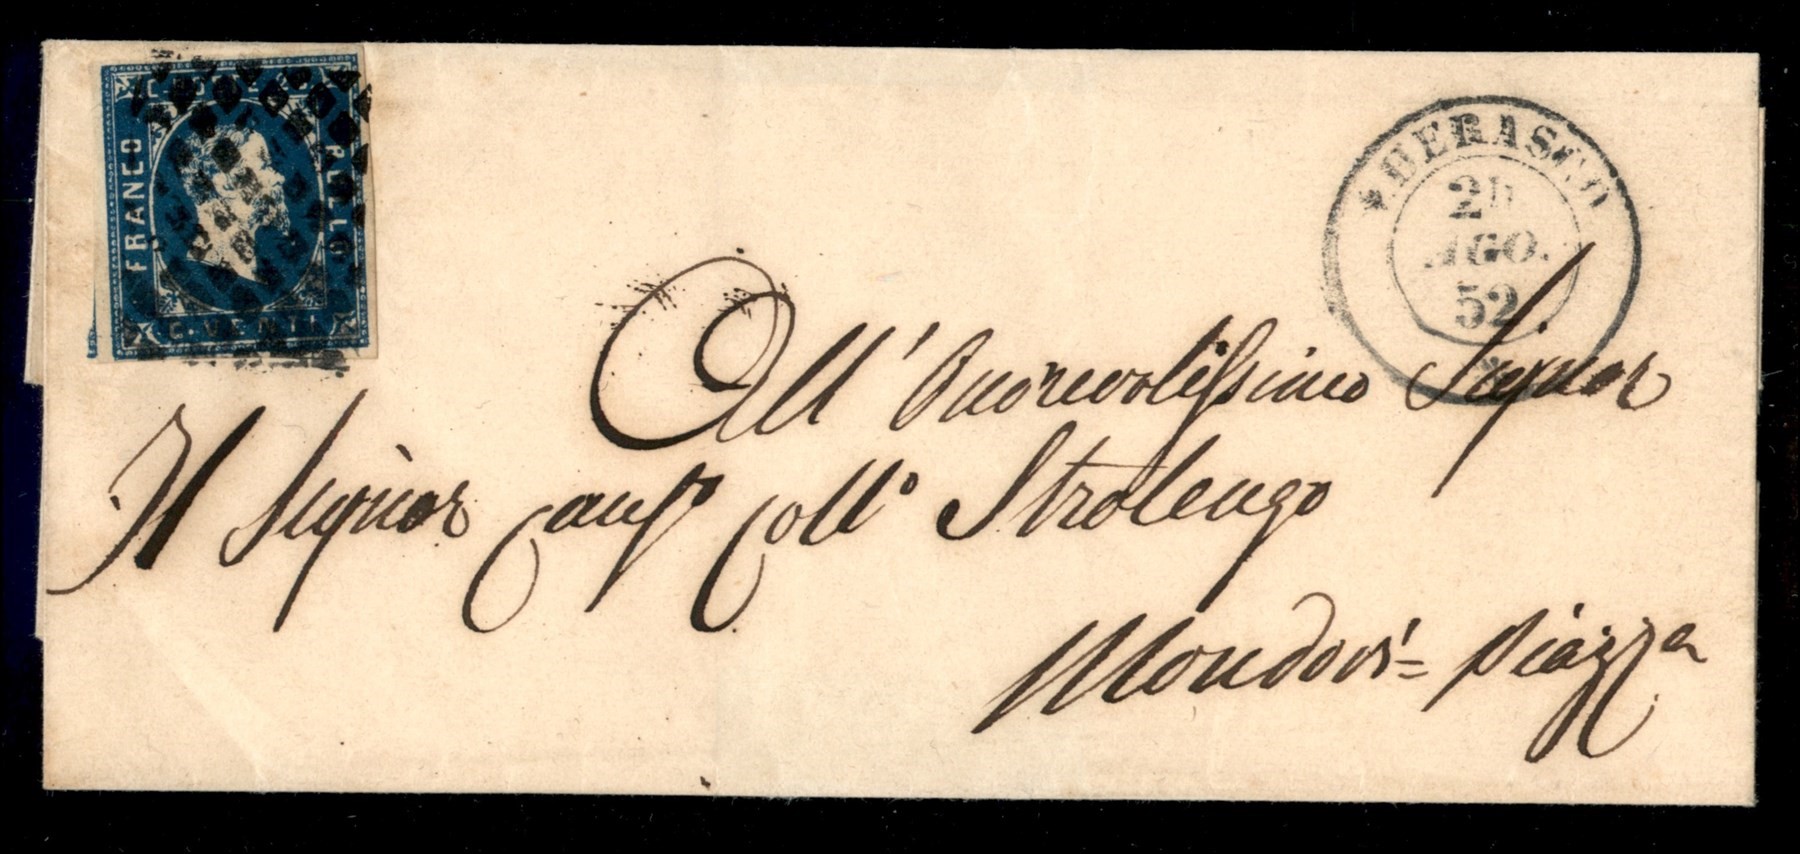 C. POSTE
FRANCO
BOLLO
C. VENTI
CHERASCO
AGO.
52
All' Onorevolissimo Signor
Il Signor Caus.o Coll.o Strolengo
Mondovi = Piazza